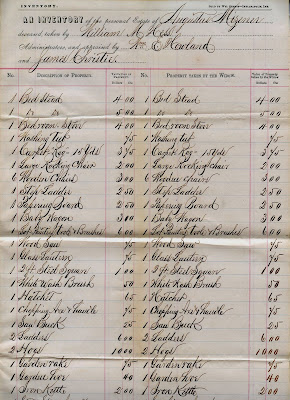 INVENTORY.
AN INVENTORY of the personal Estate of Augustus Mizener
deceased, taken by William H. Hess
Administrator, and appraised by Wm E. Newland
and James Christie.
No. DESCRIPTION OF PROPERTY. No. PROPERTY TAKEN BY THE WIDOW.
1 Bed Stead 4 00 1 Bed Stead 4 00
1 Do Do 5 00 1 Do Do 5 00
1 Bed room Stove 4 00 1 Bed room Stove 4 00
1 Washing Tub 75 1 Washing Tub 75
1 Carpet Rag 15 yds 3 75 1 Carpet Rag 15 yds 3 75
1 Large Rocking Chair 2 00 1 Large Rocking Chair 2 00
6 Wooden Chairs 3 00 6 Wooden Chairs 3 00
1 Step Ladder 2 50 1 Step Ladder 2 50
1 Papering Board 2 50 1 Papering Board 2 50
1 Baby Wagon 3 00 1 Baby Wagon 3 00
Brushes 6 00 Brushes 6 00
1 Wood Saw 75 1 Wood Saw 75
1 Glass Lantern 75 1 Glass Lantern 75
1 2 ft Steel Square 1 00 1 2 ft Steel Square 1 00
1 White Wash Brush 50 1 White Wash Brush 50
1 Hatchet 65 1 Hatchet 65
1 Chopping Axe & handle 75 1 Chopping Axe & handle 75
1 Saw Buck 25 1 Saw Buck 25
2 Ladders 6 00 2 Ladders 6 00
2 Hogs 10 00 2 Hogs 10 00
1 Garden rake 75 1 Garden rake 75
1 Garden hoe 40 1 Garden hoe 40
1 Iron Kettle 2 00 1 Iron Kettle 2 00